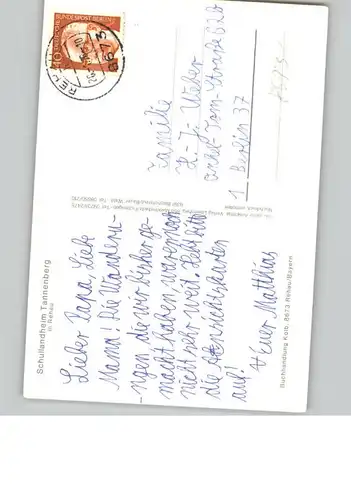 Schullandheim Tannenberg
in Rehau
Lieber Papa, Liebe
Mama! Die Wanderu-
-ngen die wir bisher ge-
macht haben waren noch
nicht sehr weit. Hebt bitte
die Ansichtskarten
auf!
Euer Matthias
Buchhandlung Kolb, 8673 Rehau/Bayern
DEUTSCHE BUNDESPOST BERLIN
40
8673
REHAU
Familie
H.-J. Weber
Onkel-Tom-Straße 62
1 Berlin 37